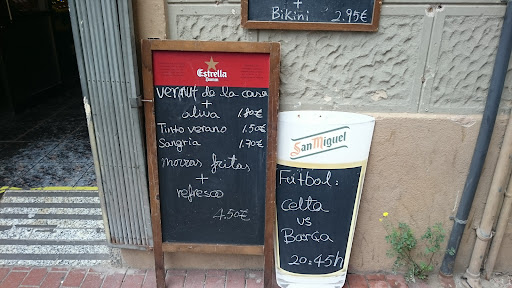 +
Bikini 2.95€
Estrella
Damm
vermut de la casa
+
oliva 1.80€
Tinto verano 1.50€
Sangria 1.70€
morros fritos
+
refresco
4.50€
San Miguel
Fútbol:
celta
vs
Barça
20:45h